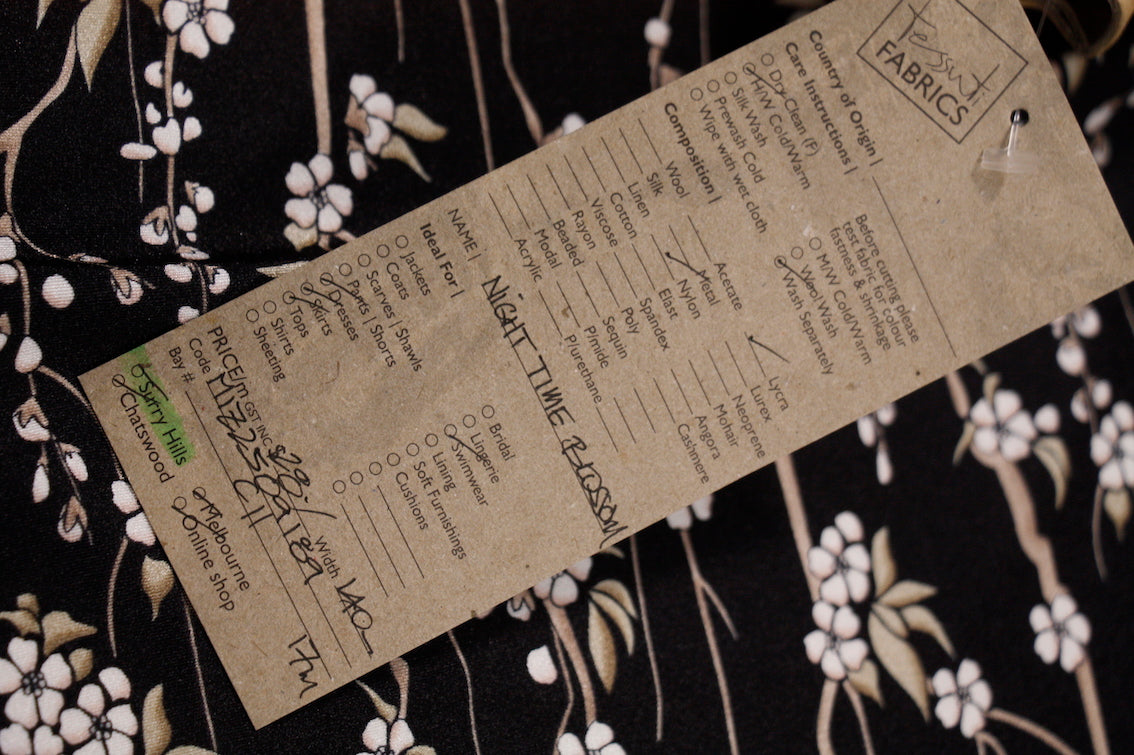 Tessuti
FABRICS
Country of Origin |
Care Instructions |
Dry-Clean (F)
H/W Cold/Warm
Silk Wash
Prewash Cold
Wipe with wet cloth
Before cutting please
test fabric for colour
fastness & shrinkage
M/W Cold/Warm
Wool Wash
Wash Separately
Composition |
Wool Acetate Lycra
Silk Metal Lurex
Linen Nylon Neoprene
Cotton Elast Mohair
Viscose Spandex Angora
Rayon Poly Cashmere
Beaded Sequin
Modal P/mide
Acrylic P/urethane
NAME | NIGHT TIME BLOSSOM
Ideal For |
Jackets Bridal
Coats Lingerie
Scarves | Shawls Swimwear
Pants | Shorts Lining
Dresses Soft Furnishings
Skirts Cushions
Tops
Shirts
Sheeting
PRICE/m GST INC Width 140
Code
Bay # C11 17m
Surry Hills Melbourne
Chatswood Online shop